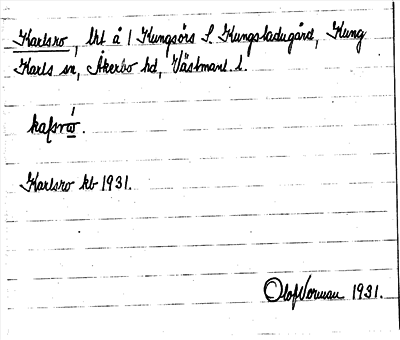 Karlsro, lht å 1 Kungsörs S. Kungsladugård, Kung
Karls sn, Åkerbo hd, Västmanl. l.
kaḷsrώ̲.
Karlsro kb 1931.
Olof Norman 1931.